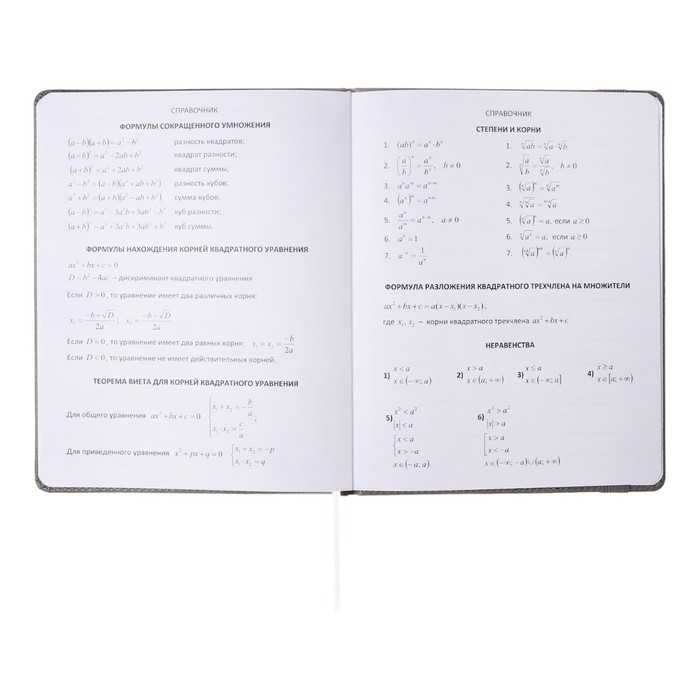 СПРАВОЧНИК
ФОРМУЛЫ СОКРАЩЕННОГО УМНОЖЕНИЯ
(a−b)(a+b)=a²−b² разность квадратов;
(a−b)²=a²−2ab+b² квадрат разности;
(a+b)²=a²+2ab+b² квадрат суммы;
a³−b³=(a−b)(a²+ab+b²) разность кубов;
a³+b³=(a+b)(a²−ab+b²) сумма кубов;
(a−b)³=a³−3a²b+3ab²−b³ куб разности;
(a+b)³=a³+3a²b+3ab²+b³ куб суммы.
ФОРМУЛЫ НАХОЖДЕНИЯ КОРНЕЙ КВАДРАТНОГО УРАВНЕНИЯ
ax²+bx+c=0
D=b²−4ac – дискриминант квадратного уравнения
Если D>0, то уравнение имеет два различных корня:
x₁=(−b+√D)/2a; x₂=(−b−√D)/2a
Если D=0, то уравнение имеет два равных корня: x₁=x₂=−b/2a
Если D<0, то уравнение не имеет действительных корней.
ТЕОРЕМА ВИЕТА ДЛЯ КОРНЕЙ КВАДРАТНОГО УРАВНЕНИЯ
Для общего уравнения ax²+bx+c=0 {x₁+x₂=−b/a
x₁·x₂=c/a;
Для приведенного уравнения x²+px+q=0 {x₁+x₂=−p
x₁·x₂=q
СПРАВОЧНИК
СТЕПЕНИ И КОРНИ
1. (ab)ⁿ=aⁿ·bⁿ 1. ⁿ√ab=ⁿ√a·ⁿ√b
2. (a/b)ⁿ=aⁿ/bⁿ, b≠0 2. ⁿ√(a/b)=ⁿ√a/ⁿ√b, b≠0
3. aⁿaᵐ=aⁿ⁺ᵐ 3. (ⁿ√a)ᵐ=ⁿ√aᵐ
4. (aⁿ)ᵐ=aⁿ·ᵐ 4.
5. aⁿ/aᵐ=aⁿ⁻ᵐ, a≠0 5. , если a≥0
6. a⁰=1 6. ⁿ√aⁿ=a, если a≥0
7. a⁻ⁿ=1/aⁿ 7.
ФОРМУЛА РАЗЛОЖЕНИЯ КВАДРАТНОГО ТРЕХЧЛЕНА НА МНОЖИТЕЛИ
ax²+bx+c=a(x−x₁)(x−x₂),
где x₁, x₂ – корни квадратного трехчлена ax²+bx+c
НЕРАВЕНСТВА
1) x<a
x∈(−∞;a)
2) x>a
x∈(a;+∞)
3) x≤a
x∈(−∞;a]
4) x≥a
x∈[a;+∞)
5) x²<a²
|x|<a
{x<a
x>−a
x∈(−a;a)
6) x²>a²
|x|>a
[x>a
x<−a
x∈(−∞;−a)∪(a;+∞)